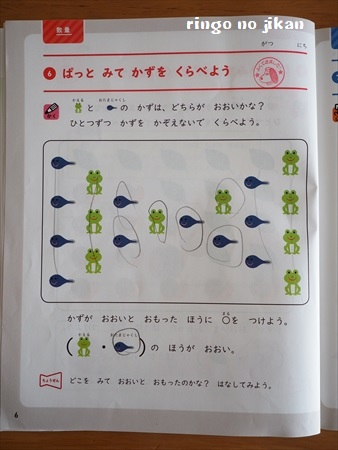 ringo no jikan
数量
がつ にち
6 ぱっと みて かずを くらべよう
かく かえる と おたまじゃくし の かずは、どちらが おおいかな？
ひとつずつ かずを かぞえないで くらべよう。
かずが おおいと おもった ほうに ○まるを つけよう。
( かえる ・ おたまじゃくし ) の ほうが おおい。
ちょうせん どこを みて おおいと おもったのかな？ はなしてみよう。
6